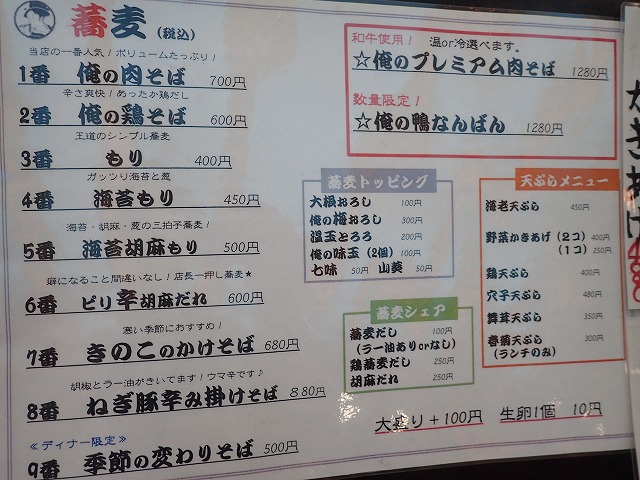 蕎麦 (税込)
当店の一番人気！ボリュームたっぷり！
1番 俺の肉そば 700円
辛さ爽快！あったか鶏だし
2番 俺の鶏そば 600円
王道のシンプル蕎麦
3番 もり 400円
ガッツリ海苔と葱
4番 海苔もり 450円
海苔・胡麻・葱の三拍子蕎麦！
5番 海苔胡麻もり 500円
癖になること間違いなし！店長一押し蕎麦★
6番 ピリ辛胡麻だれ 600円
寒い季節におすすめ！
7番 きのこのかけそば 680円
胡椒とラー油がきいてます！ウマ辛です♪
8番 ねぎ豚辛み掛けそば 880円
≪ディナー限定≫
9番 季節の変わりそば 500円
和牛使用！ 温or冷選べます。
☆俺のプレミアム肉そば 1280円
数量限定！
☆俺の鴨なんばん 1280円
蕎麦トッピング
大根おろし 100円
俺の梅おろし 300円
温玉とろろ 200円
俺の味玉（2個） 100円
七味 50円 山葵 50円
蕎麦シェア
蕎麦だし 100円
（ラー油ありorなし）
鶏蕎麦だし 250円
胡麻だれ 250円
天ぷらメニュー
海老天ぷら 450円
野菜かきあげ（2コ） 400円
（1コ） 250円
鶏天ぷら 400円
穴子天ぷら 480円
舞茸天ぷら 350円
春菊天ぷら 300円
（ランチのみ）
大盛り＋100円 生卵1個 10円